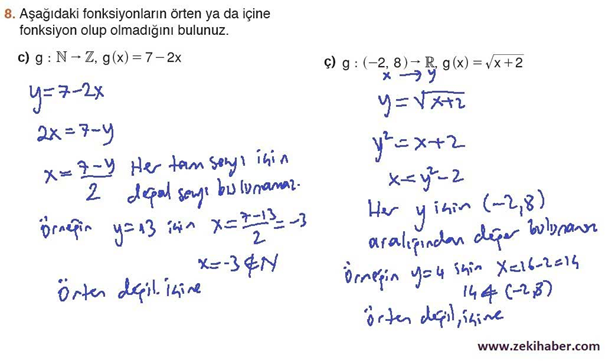 8. Aşağıdaki fonksiyonların örten ya da içine
fonksiyon olup olmadığını bulunuz.
c) g : ℕ → ℤ, g(x) = 7 – 2x
y = 7-2x
2x = 7-y
x = (7-y)/2 Her tam sayı için
doğal sayı bulunamaz.
Örneğin y=13 için x = (7-13)/2 = -3
x=-3 ∉ N
Örten değil. içine
ç) g : (–2, 8) → ℝ, g(x) = √(x + 2)
x → y
y = √(x+2)
y² = x+2
x = y²-2
Her y için (-2,8)
aralığından değer bulunamaz
Örneğin y=4 için x=16-2=14
14 ∉ (-2,8)
örten değil, içine
www.zekihaber.com